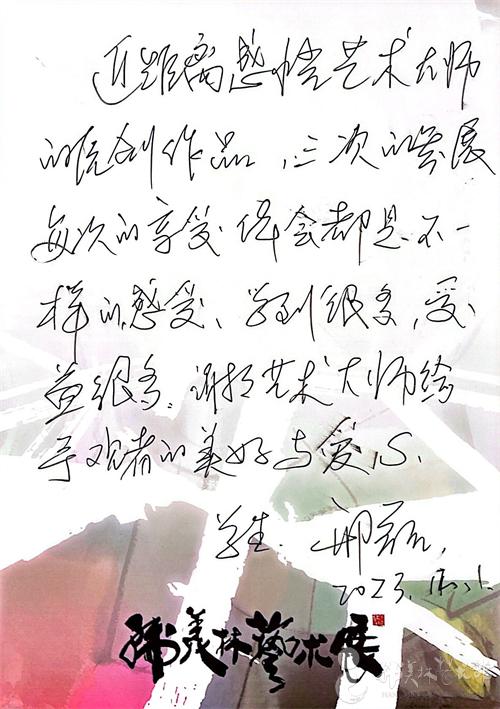 近距离感悟艺术大师
的原创作品，三次的参展
每次的享受体会都是不一
样的感受、学到很多，受
益很多。谢谢艺术大师给
予观者的美好与爱心、
学生
2023.
韩美林艺术展